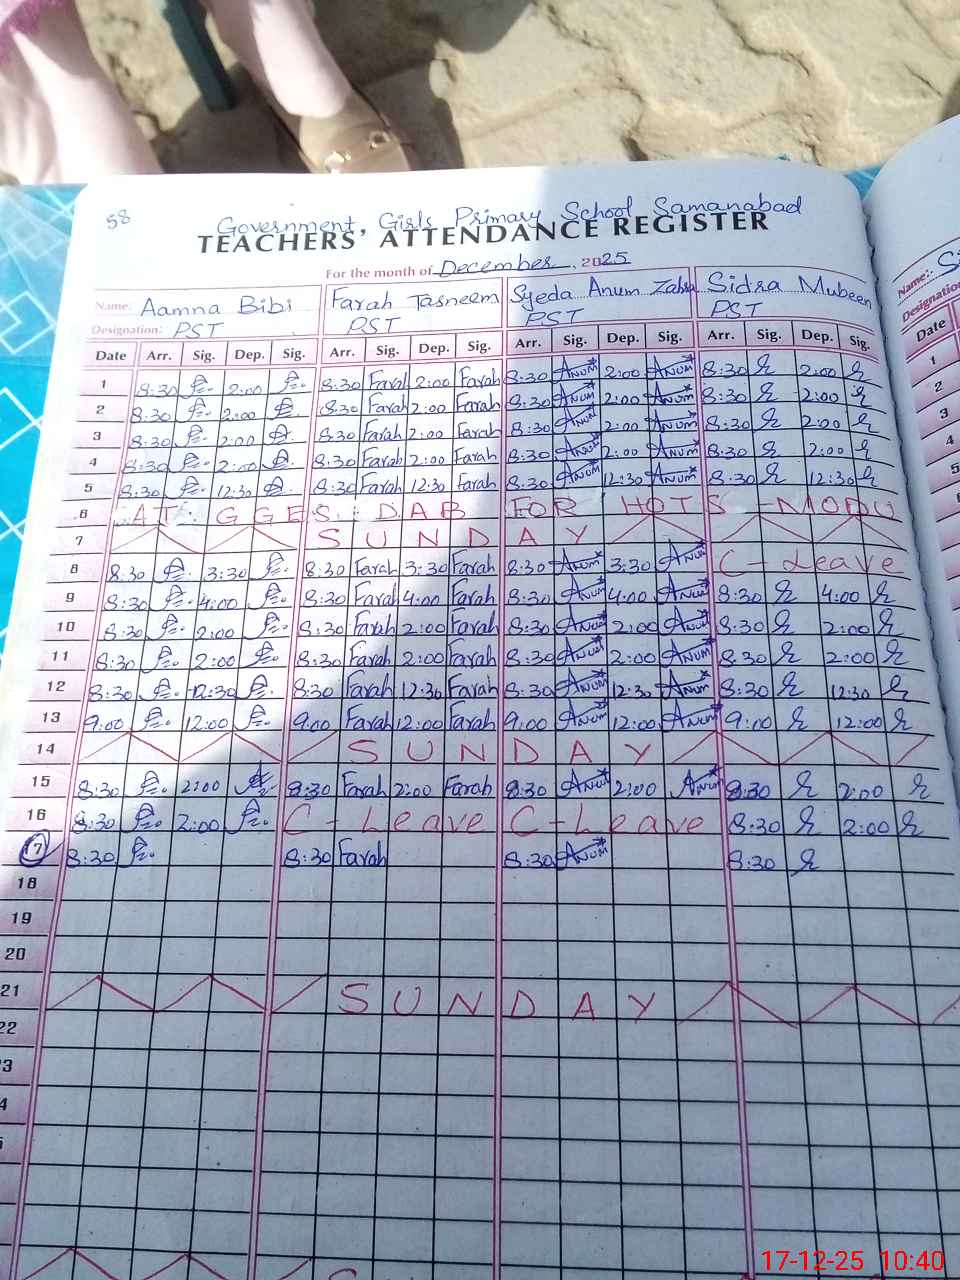 58
Government, Girls Primary School Samanabad
TEACHERS' ATTENDANCE REGISTER
For the month of December 2025
Name: Aamna Bibi Farah Tasneem Syeda Anum Zahra Sidra Mubeen
Designation: PST PST PST PST
Date Arr. Sig. Dep. Sig. Arr. Sig. Dep. Sig. Arr. Sig. Dep. Sig. Arr. Sig. Dep. Sig.
1 8:30 2:00 8:30 Farah 2:00 Farah 8:30 Anum 2:00 Anum 8:30 2:00
2 8:30 2:00 8:30 Farah 2:00 Farah 8:30 Anum 2:00 Anum 8:30 2:00
3 8:30 2:00 8:30 Farah 2:00 Farah 8:30 Anum 2:00 Anum 8:30 2:00
4 8:30 2:00 8:30 Farah 2:00 Farah 8:30 Anum 2:00 Anum 8:30 2:00
5 8:30 12:30 8:30 Farah 12:30 Farah 8:30 Anum 12:30 Anum 8:30 12:30
6 AT GGES DAB FOR HOTS - MODU
7 SUNDAY
8 8:30 3:30 8:30 Farah 3:30 Farah 8:30 Anum 3:30 Anum C-Leave
9 8:30 4:00 8:30 Farah 4:00 Farah 8:30 Anum 4:00 Anum 8:30 4:00
10 8:30 2:00 8:30 Farah 2:00 Farah 8:30 Anum 2:00 Anum 8:30 2:00
11 8:30 2:00 8:30 Farah 2:00 Farah 8:30 Anum 2:00 Anum 8:30 2:00
12 8:30 12:30 8:30 Farah 12:30 Farah 8:30 Anum 12:30 Anum 8:30 12:30
13 9:00 12:00 9:00 Farah 12:00 Farah 9:00 Anum 12:00 Anum 9:00 12:00
14 SUNDAY
15 8:30 2:00 8:30 Farah 2:00 Farah 8:30 Anum 2:00 Anum 8:30 2:00
16 8:30 2:00 C-Leave C-Leave 8:30 2:00
17 8:30 8:30 Farah 8:30 Anum 8:30
18
19
20
21 SUNDAY
22
3
4
Name:
Designation
Date
1
2
3
4
5
17-12-25 10:40